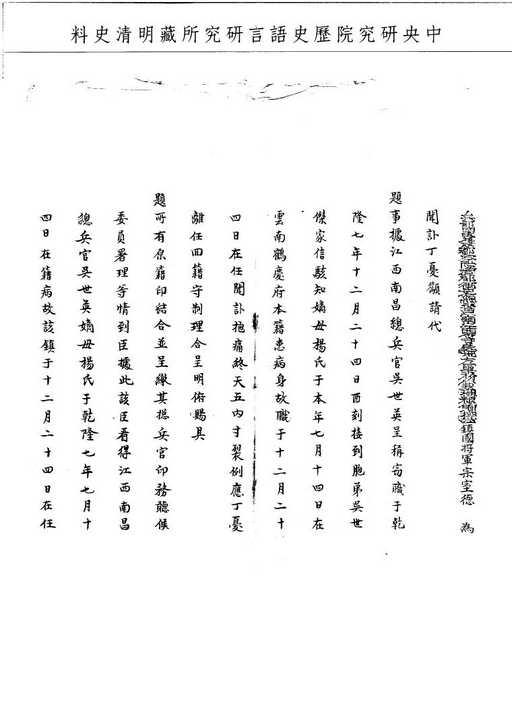 中央研究院歷史語言研究所藏明清史料
鎮國將軍宗室德 為
聞訃丁憂籲請代
題事據江西南昌總兵官吳世英呈稱窃職于乾
隆七年十二月二十四日酉刻接到胞弟吳世
傑家信駭知嫡母楊氏于本年七月十四日在
雲南鶴慶府本籍患病身故職于十二月二十
四日在任聞訃抱痛終天五內寸裂例應丁憂
離任回籍守制理合呈明術賜具
題所有原籍印結合並呈繳其捴兵官印務聽候
委員署理等情到臣據此該臣看得江西南昌
總兵官吳世英嫡母楊氏于乾隆七年七月十
四日在籍病故該鎮于十二月二十四日在任